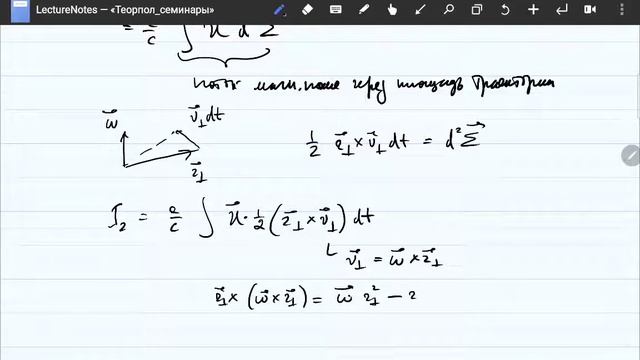 LectureNotes — «Теорпол_семинары»
= e/c ∫ ℋ⃗ d Σ⃗
поток магн. поля через площадь траектории
ω⃗ v⃗⊥dt
r⃗⊥
1/2 r⃗⊥ × v⃗⊥ dt = d²Σ⃗
I₂ = e/c ∫ ℋ⃗ · 1/2 (r⃗⊥ × v⃗⊥) dt
v⃗⊥ = ω⃗ × r⃗⊥
r⃗⊥ × (ω⃗ × r⃗⊥) = ω⃗ r⊥² −